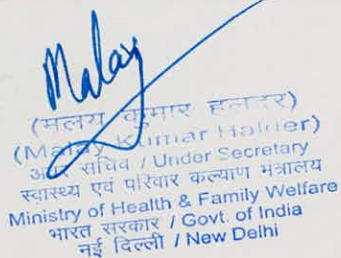 Malay
(मलय कुमार हलदर)
(Malay Kumar Halder)
सचिव / Under Secretary
स्वास्थ्य एवं परिवार कल्याण मंत्रालय
Ministry of Health & Family Welfare
भारत सरकार / Govt. of India
नई दिल्ली / New Delhi